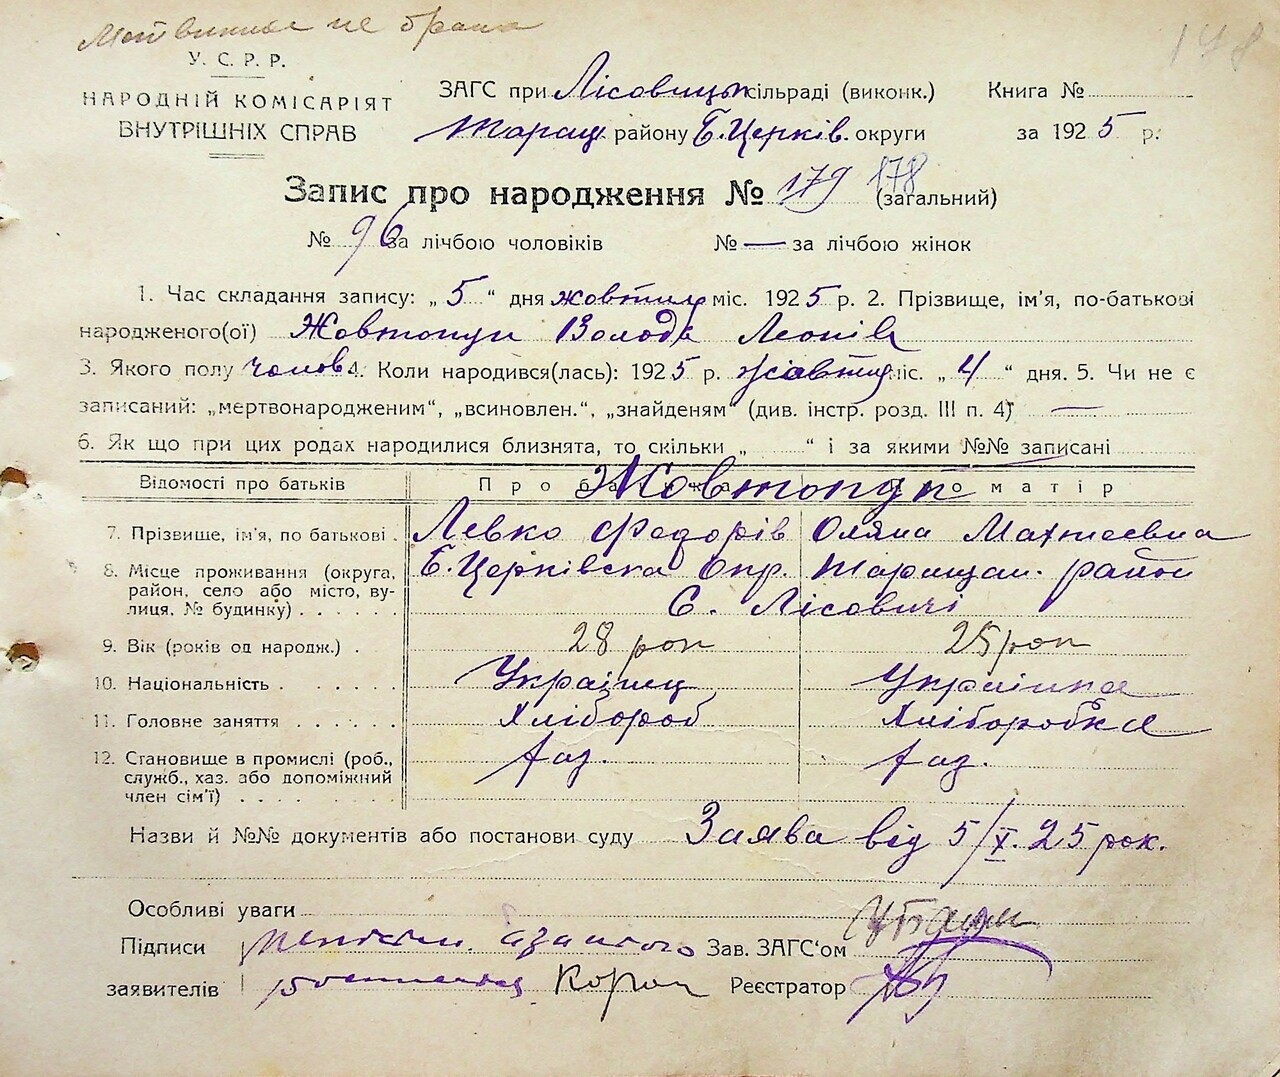 не брала
178
У. С. Р. Р.
НАРОДНІЙ КОМІСАРІЯТ
ВНУТРІШНІХ СПРАВ
ЗАГС при Лісовицьк сільраді (виконк.) Книга №
Таращ району Б. Церків. округи за 1925 р.
Запис про народження № 179 178 (загальний)
№ 96 за лічбою чоловіків № — за лічбою жінок
1. Час складання запису: „ 5 “ дня жовтня міс. 1925 р. 2. Прізвище, ім'я, по-батькові
народженого(ої) Жовтопуп Володя Леонів
3. Якого полу чолов 4. Коли народився(лась): 1925 р. жовтня міс. „ 4 “ дня. 5. Чи не є
записаний: „мертвонародженим“, „всиновлен.“, „знайденям“ (див. інстр. розд. III п. 4) —
6. Як що при цих родах народилися близнята, то скільки „ “ і за якими №№ записані
Відомості про батьків Про батька Про матір
Жовтопуп
7. Прізвище, ім'я, по батькові . Левко Федорів Оляна Махтеевна
8. Місце проживання (округа, Б. Церківска Окр. Таращан. район
район, село або місто, ву-
лиця, № будинку) . . . . . С. Лісовичі
9. Вік (років од народж.) . 28 рок 25 рок
10. Національність . . . . . . Українец Українка
11. Головне заняття . . . . . Хлібороб Хлоборобка
12. Становище в промислі (роб., хаз. хаз.
служб., хаз. або допоміжний
член сім'ї) . . . . . . . .
Назви й №№ документів або постанови суду Заява від 5/X. 25 рок.
Особливі уваги
Підписи Зав. ЗАГС'ом
заявителів Реєстратор